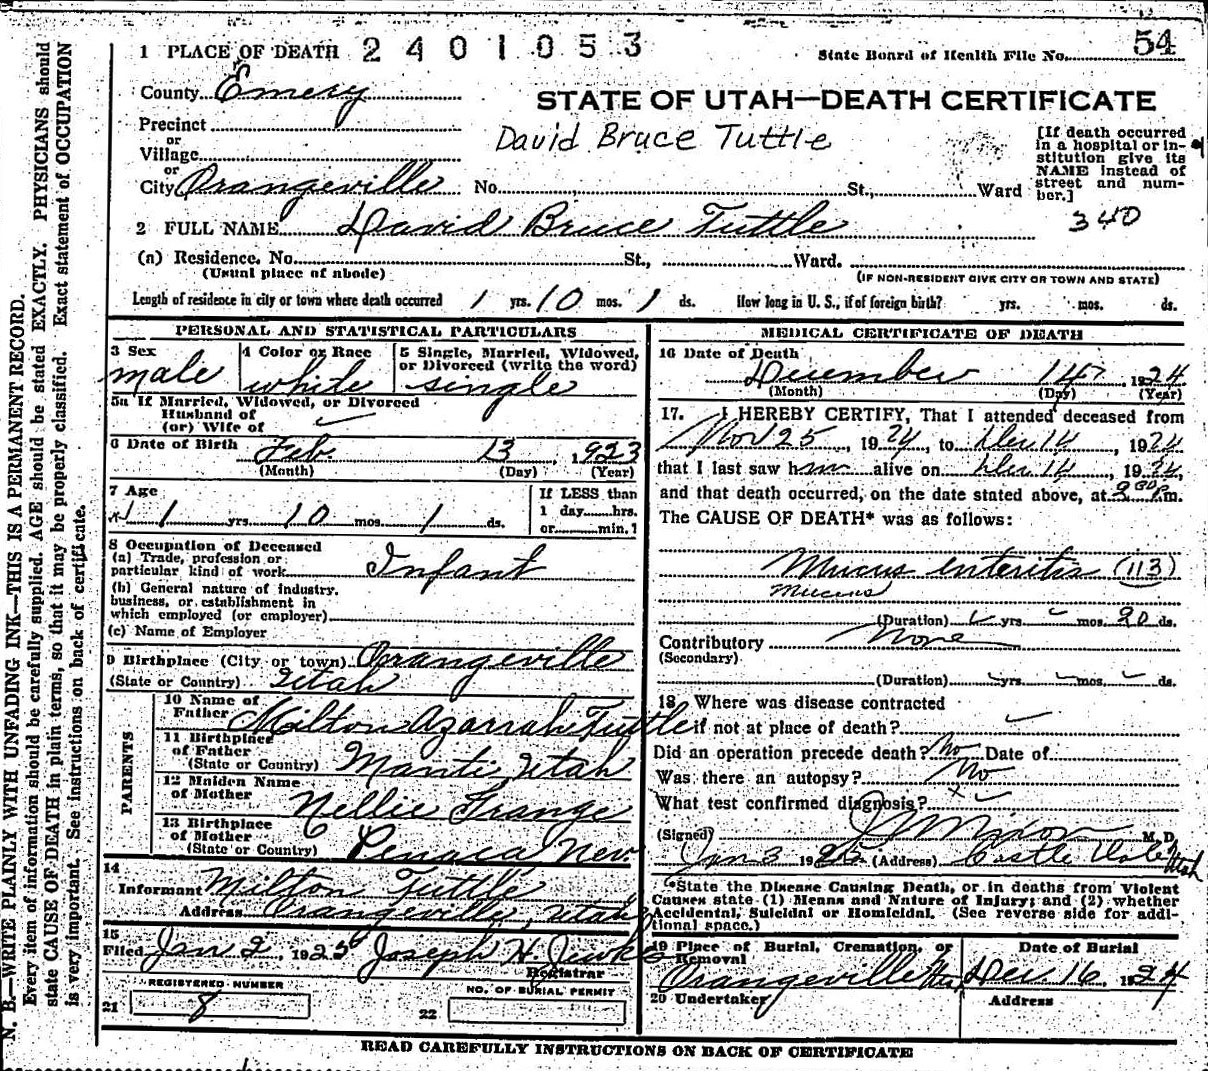 N. B.—WRITE PLAINLY WITH UNFADING INK—THIS IS A PERMANENT RECORD.
Every item of information should be carefully supplied. AGE should be stated EXACTLY. PHYSICIANS should
state CAUSE OF DEATH in plain terms, so that it may be properly classified. Exact statement of OCCUPATION
is very important. See instructions on back of certificate.
1 PLACE OF DEATH 2401053
State Board of Health File No. 54
County Emery
STATE OF UTAH—DEATH CERTIFICATE
Precinct
or
Village
or
David Bruce Tuttle
[If death occurred
in a hospital or in-
stitution give its
NAME instead of
street and num-
ber.]
City Orangeville No. St., Ward
340
2 FULL NAME David Bruce Tuttle
(a) Residence. No. St., Ward.
(Usual place of abode) (IF NON-RESIDENT GIVE CITY OR TOWN AND STATE)
Length of residence in city or town where death occurred 1 yrs. 10 mos. 1 ds. How long in U. S., if of foreign birth? yrs. mos. ds.
PERSONAL AND STATISTICAL PARTICULARS
3 Sex male
4 Color or Race white
5 Single, Married, Widowed,
or Divorced (write the word)
single
5a If Married, Widowed, or Divorced
Husband of
(or) Wife of
6 Date of Birth Feb. 13, 1923
(Month) (Day) (Year)
7 Age
1 yrs. 10 mos. 1 ds.
If LESS than
1 day hrs.
or min.?
8 Occupation of Deceased
(a) Trade, profession or
particular kind of work Infant
(b) General nature of industry,
business, or establishment in
which employed (or employer)
(c) Name of Employer
9 Birthplace (City or town) Orangeville
(State or Country) Utah
PARENTS
10 Name of
Father Milton Azarrah Tuttle
11 Birthplace
of Father
(State or Country) Manti, Utah
12 Maiden Name
of Mother Nellie Grange
13 Birthplace
of Mother
(State or Country) Penaca Nev.
14
Informant Milton Tuttle
Address Orangeville, Utah
15
Filed Jan 2, 1925 Joseph H Jewkes
Registrar
REGISTERED NUMBER
21 8
NO. OF BURIAL PERMIT
22
MEDICAL CERTIFICATE OF DEATH
16 Date of Death
December 14 1924
(Month) (Day) (Year)
17. I HEREBY CERTIFY, That I attended deceased from
Nov 25, 1924, to Dec 14, 1924
that I last saw him alive on Dec 14, 1924,
and that death occurred, on the date stated above, at 9 30 P.m.
The CAUSE OF DEATH* was as follows:
Mucus enteritis (113)
Mucus
(Duration) yrs. mos. 20 ds.
Contributory None
(Secondary)
(Duration) yrs. mos. ds.
18 Where was disease contracted
if not at place of death?
Did an operation precede death? No Date of
Was there an autopsy? No
What test confirmed diagnosis?
(Signed) J W Nixon M. D.
Jan 3 1925 (Address) Castle Dale Utah
*State the Disease Causing Death, or in deaths from Violent
Causes state (1) Means and Nature of Injury; and (2) whether
Accidental, Suicidal or Homicidal. (See reverse side for addi-
tional space.)
19 Place of Burial, Cremation, or
Removal
Orangeville
Date of Burial
Dec 16, 1924
20 Undertaker
Address
READ CAREFULLY INSTRUCTIONS ON BACK OF CERTIFICATE